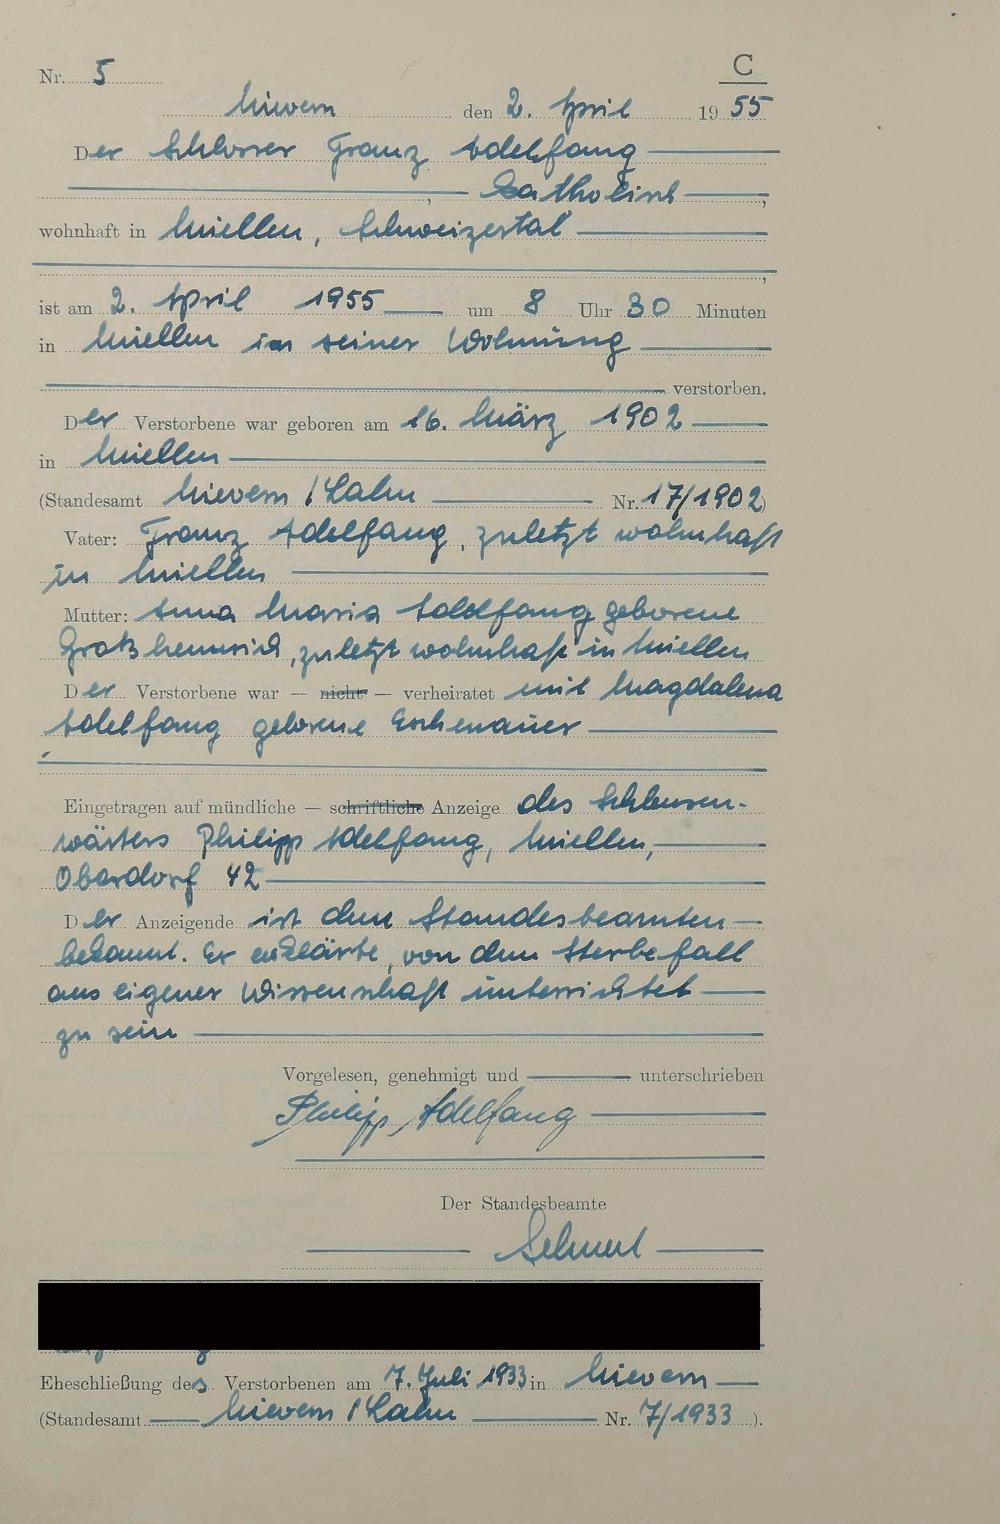 C
Nr. 5
Nievern den 2. April 1955
Der Schlosser Franz Adelfang
, katholisch,
wohnhaft in Miellen, Schweizertal
,
ist am 2. April 1955 um 8 Uhr 30 Minuten
in Miellen in seiner Wohnung
verstorben.
Der Verstorbene war geboren am 16. März 1902
in Miellen
(Standesamt Nievern / Lahn Nr. 17/1902)
Vater: Franz Adelfang, zuletzt wohnhaft
in Miellen
Mutter: Anna Maria Adelfang geborene
zuletzt wohnhaft in Miellen
Der Verstorbene war — nicht — verheiratet mit Magdalena
Adelfang geborene Eschenauer
Eingetragen auf mündliche — schriftliche Anzeige des Schleusen-
wärters Philipp Adelfang, Miellen,
Oberdorf 42
Der Anzeigende ist dem Standesbeamten
bekannt. Er erklärte, von dem Sterbefall
aus eigener Wissenschaft unterrichtet
zu sein
Vorgelesen, genehmigt und unterschrieben
Philipp Adelfang
Der Standesbeamte
Eheschließung des Verstorbenen am 7. Juli 1933 in Nievern
(Standesamt Nievern / Lahn Nr. 7/1933).